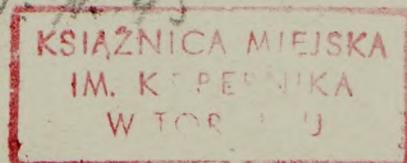 KSIĄŻNICA MIEJSKA
IM. K PERNIKA
W TOR U